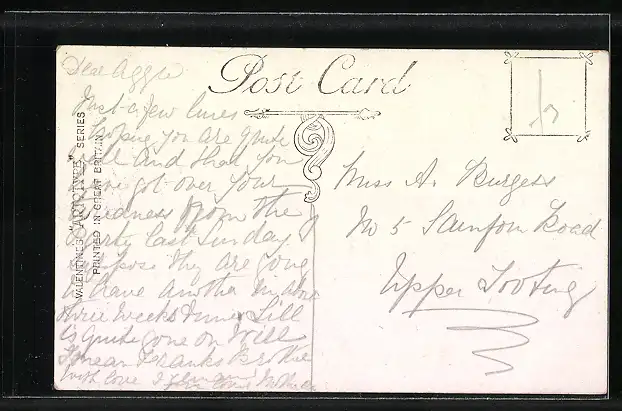 Post Card
Dear Aggie
Just a few lines
hoping you are quite
well and that you
have got over your
from the
Party last Sunday I
suppose they are going
to have another in about
three weeks time Lill
is quite gone on Will
I mean Franks Brother
with love
VALENTINES' "ARTOTYPE" SERIES
PRINTED IN GREAT BRITAIN
Miss A. Burgess
No 5 Road
Upper Tooting